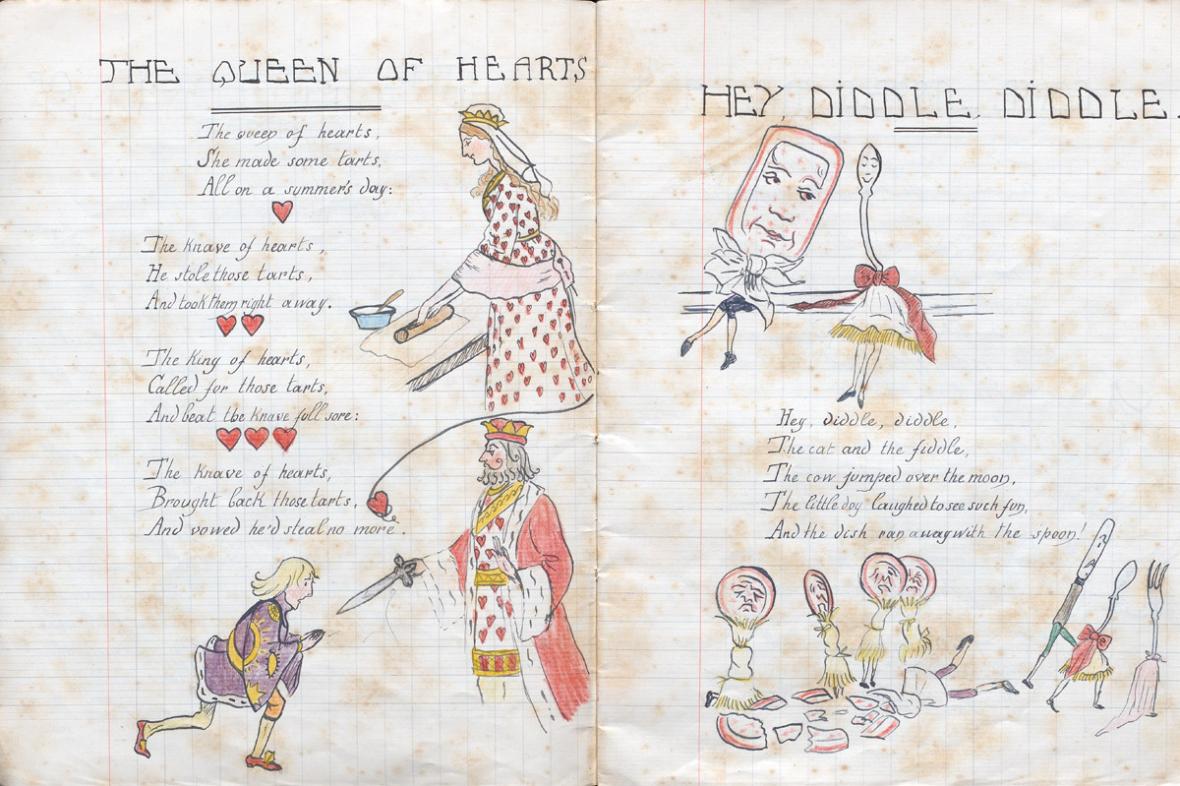 THE QUEEN OF HEARTS
The queen of hearts,
She made some tarts,
All on a summer's day:
The knave of hearts,
He stole those tarts,
And took them right away.
The King of hearts,
Called for those tarts,
And beat the knave full sore:
The knave of hearts,
Brought back those tarts,
And vowed he'd steal no more.
HEY, DIDDLE, DIDDLE.
Hey, diddle, diddle,
The cat and the fiddle,
The cow jumped over the moon,
The little dog laughed to see such fun,
And the dish ran away with the spoon!